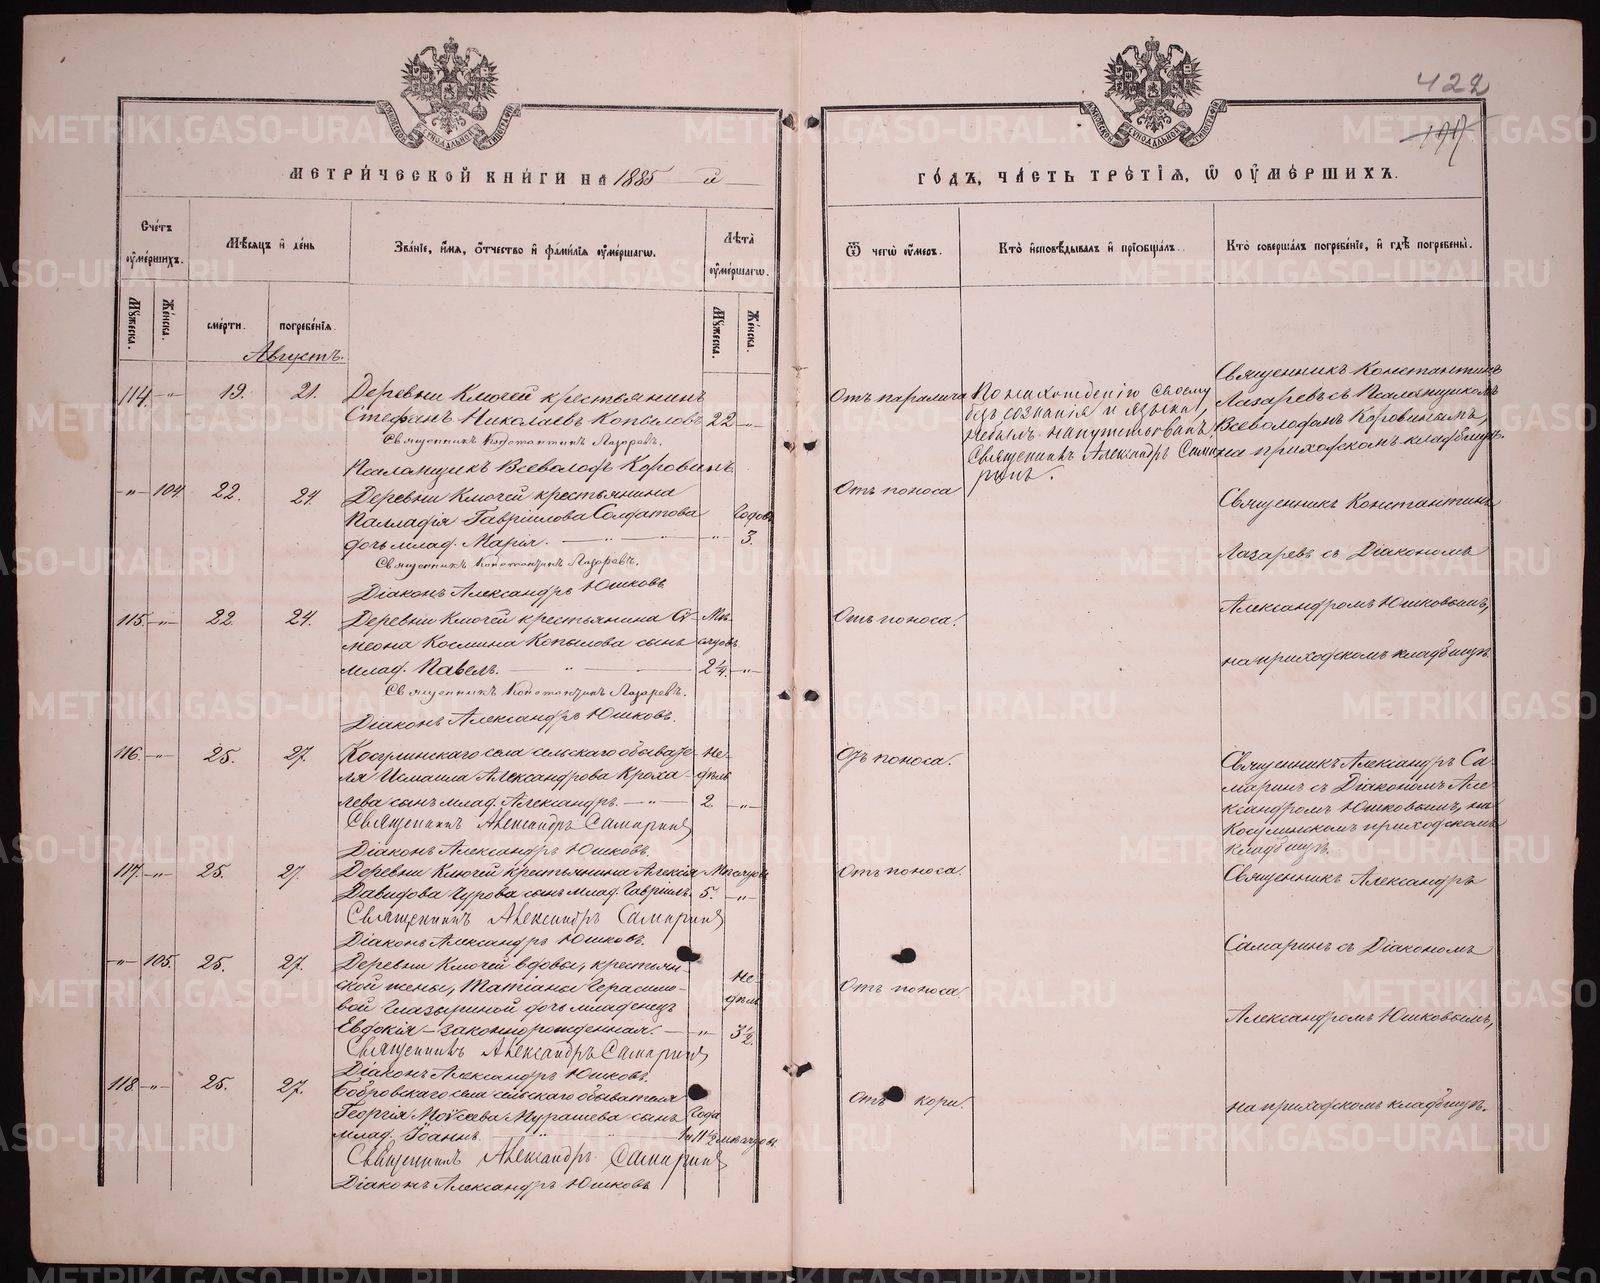 422
МЕТРИ́ЧЕСКОЙ КНИ́ГИ НА 1885 й
ГО́ДЪ, ЧА́СТЬ ТРЕ́ТІѦ, Ѿ ОУМЕ́РШИХЪ.
Сче́тъ оуме́ршихъ.
Мѣ́сѧцъ и де́нь
Зва́ніе, и́мѧ, о́тчество и фами́лїѧ оуме́ршагѡ.
Лѣта̀ оуме́ршагѡ.
Ѿ чегѡ̀ оу́меръ.
Кто̀ и҆сповѣ́дывалъ и҆ прїѡбща́лъ.
Кто̀ соверша́лъ погребе́нїе, и҆ гдѣ̀ погребены̀.
Мꙋ́жеска.
Же́нска.
сме́рти.
погребе́нїѧ.
Мꙋ́жеска.
Же́нска.
Августъ.
114. -"- 19. 21. Деревни Ключей крестьянинъ
Стефанъ Николаевъ Копыловъ 22 -"-
Священникъ Константинъ Лазаревъ.
Псаломщикъ Всеволодъ Коровинъ
Отъ паралича
По нахожденію своему
безъ сознанія и языка,
небылъ напутствованъ.
Священникъ Александръ Сама
ринъ.
Священникъ Константинъ
Лазаревъ съ Псаломщикомъ
Всеволодомъ Коровинымъ,
на приходскомъ кладбищѣ.
-"- 104. 22. 24. Деревни Ключей крестьянина
Палладія Гавріилова Солдатова Годовъ
дочь млад. Марія. " 3.
Священникъ Константинъ Лазаревъ.
Діаконъ Александръ Юшковъ
Отъ поноса
Священникъ Константинъ
Лазаревъ съ Діакономъ
Александромъ Юшковымъ,
на приходскомъ кладбищѣ.
115. -"- 22. 24. Деревни Ключей крестьянина Си- Мѣ-
меона Космина Копылова сынъ сяцовъ
млад. Павелъ. " 2¼. -"-
Священникъ Константинъ Лазаревъ.
Діаконъ Александръ Юшковъ.
Отъ поноса.
116. -"- 25. 27. Косулинскаго села сельскаго обывате- Не-
ля Исмаила Александрова Кроха- дѣль
лева сынъ млад. Александръ. -"- 2. -"-
Священникъ Александръ Самаринъ
Діаконъ Александръ Юшковъ.
Отъ поноса.
Священникъ Александръ Са-
маринъ съ Діакономъ Але-
ксандромъ Юшковымъ, на
Косулинскомъ приходскомъ
кладбищѣ.
117. -"- 25. 27. Деревни Ключей крестьянина Алексія Мѣсяцовъ
Давидова Гурова сынъ млад. Гавріилъ. 5. -"-
Священникъ Александръ Самаринъ
Діаконъ Александръ Юшковъ.
Отъ поноса.
Священникъ Александръ
Самаринъ съ Діакономъ
Александромъ Юшковымъ,
на приходскомъ кладбищѣ.
-"- 105. 25. 27. Деревни Ключей вдовы, крестьян-
ской жены, Татіаны Герасимо- Не-
вой Глазыриной дочь младенецъ дѣль
Евдокія - законнорожденная. - " 3½.
Священникъ Александръ Самаринъ
Діаконъ Александръ Юшковъ.
Отъ поноса.
118 -"- 25. 27. Бобровскаго села сельскаго обывателя
Георгія Моѵсеева Мурашева сынъ Года
млад. Іоаннъ. 1 и 11½ мѣсяцовъ
Священникъ Александръ Самаринъ
Діаконъ Александръ Юшковъ
Отъ кори.
METRIKI.GASO-URAL.RU